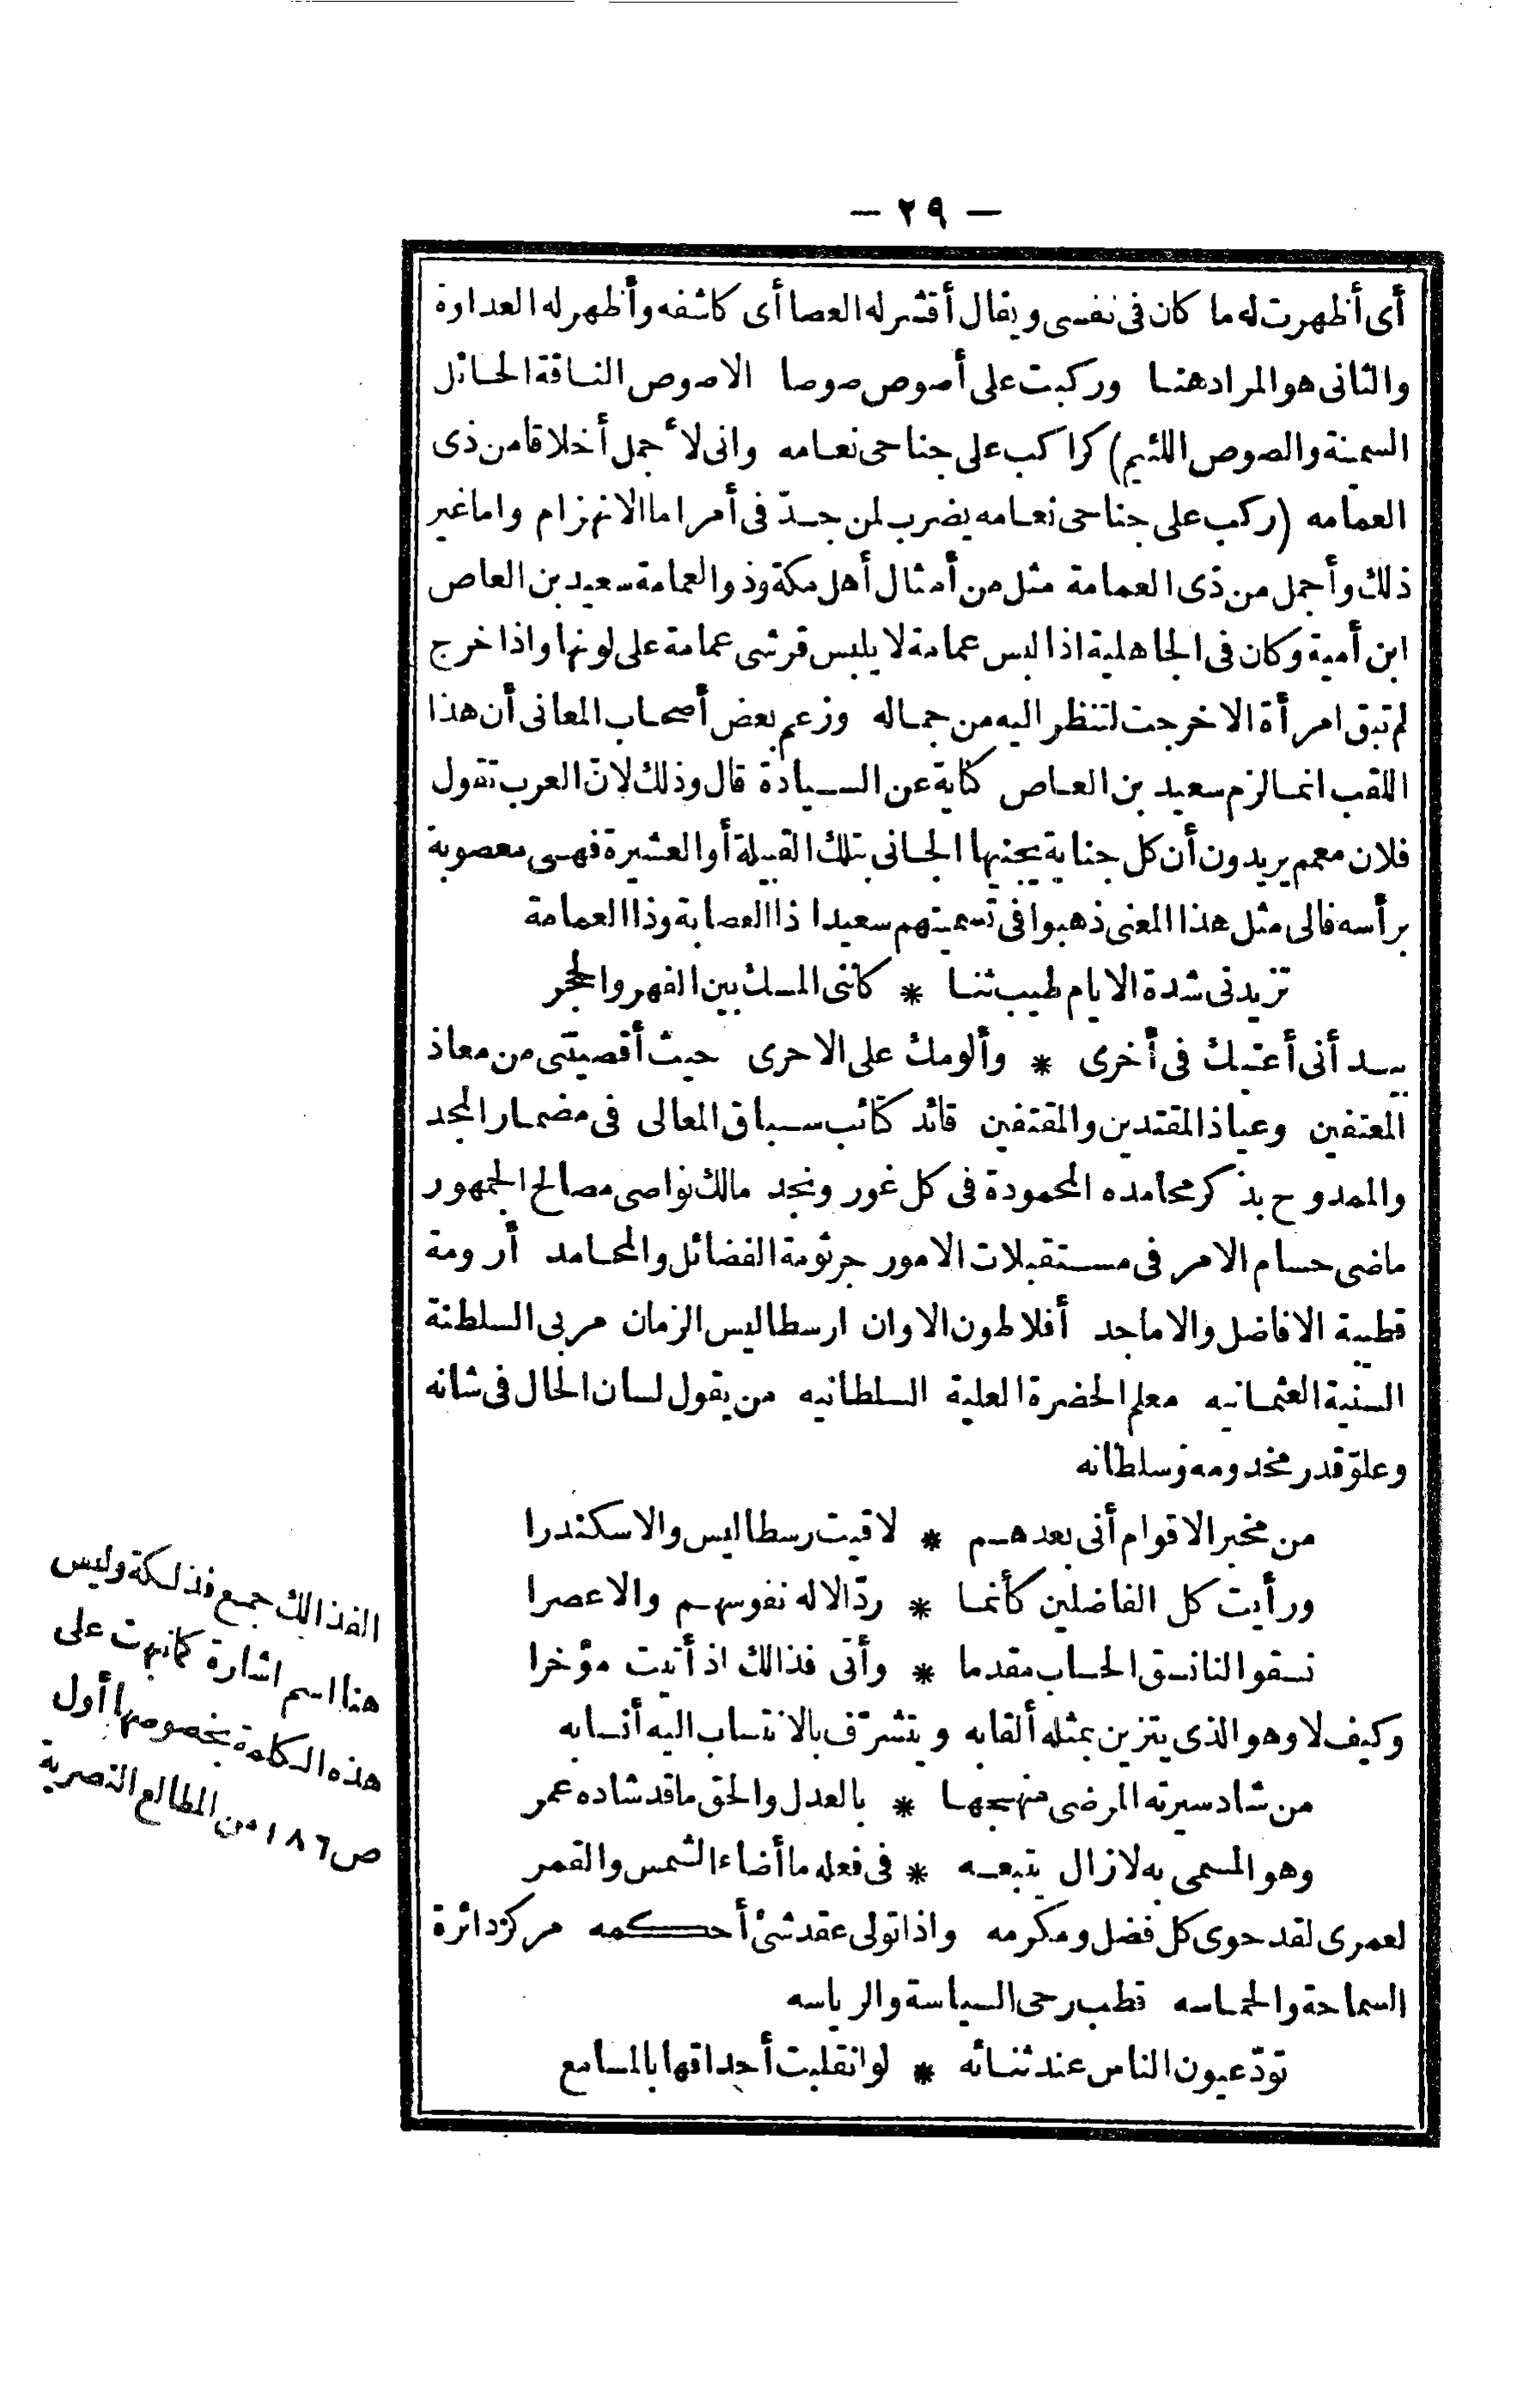 — ٢٩ —
أى أظهرت له ما كان فى نفسى ويقال أقشر له العصا أى كاشفه وأظهر له العداوة
والثانى هو المراد هنا وركبت على أصوص صوصا الاصوص الناقة الحائل
السمينة والصوص اللئيم) كراكب على جناحى نعامه وانى لأ جمل أخلاقا من ذى
العمامه (ركب على جناحى نعامه يضرب لمن جدّ فى أمر اما الانهزام واما غير
ذلك وأجمل من ذى العمامة مثل من أمثال أهل مكة وذو العمامة سعيد بن العاص
ابن أمية وكان فى الجاهلية اذا لبس عمامة لا يلبس قرشى عمامة على لونها واذا خرج
لم تبق امرأة الا خرجت لتنظر اليه من جماله وزعم بعض أصحاب المعانى أن هذا
اللقب انما لزم سعيد بن العاص كناية عن السيادة قال وذلك لانّ العرب تقول
فلان معمم يريدون أن كل جناية يجنيها الجانى بتلك القبيلة أو العشيرة فهى معصوبة
برأسه فالى مثل هذا المعنى ذهبوا فى تسميتهم سعيدا ذا العصابة وذا العمامة
تزيدنى شدة الايام طيب ثنا * كاننى المسك بين الفهر والحجر
بيد أنى أعتبك فى أخرى * وألومك على الاحرى حيث أقصيتنى من معاذ
المعتفين وعياذ المقتدين والمقتفين قائد كتائب سباق المعالى فى مضمار المجد
والممدوح بذكر محامده المحمودة فى كل غور ونجد مالك نواصى مصالح الجمهور
ماضى حسام الامر فى مستقبلات الامور جرثومة الفضائل والمحامد أرومة
قطبية الافاضل والاماجد أفلاطون الاوان ارسطاليس الزمان مربى السلطنة
السنية العثمانيه معلم الحضرة العلية السلطانيه من يقول لسان الحال فى شانه
وعلوّ قدر مخدومه وسلطانه
من مخبر الاقوام أنى بعدهم * لاقيت رسطاليس والاسكندرا
ورأيت كل الفاضلين كأنما * ردّ الاله نفوسهم والاعصرا
نسقوا لنا نسق الحساب مقدما * وأتى فذالك اذ أتيت مؤخرا
وكيف لا وهو الذى يتزين بمثله ألقابه ويتشرّف بالانتساب اليه أنسابه
من شاد سيرته المرضى منهجها * بالعدل والحق ما قد شاده عمر
وهو المسمى به لازال يتبعه * فى فعله ما أضاء الشمس والقمر
لعمرى لقد حوى كل فضل ومكرمه واذا تولى عقد شئ أحكمه مركز دائرة
السماحة والحماسه قطب رحى السياسة والرياسه
تودّ عيون الناس عند ثنائه * لو انقلبت أحداقها بالمسامع
الفذالك جمع فذلكة وليس
هنا اسم اشارة كما نبهت على
هذه الكلمة بخصوصها أول
ص ١٨٦ من المطالع النصرية